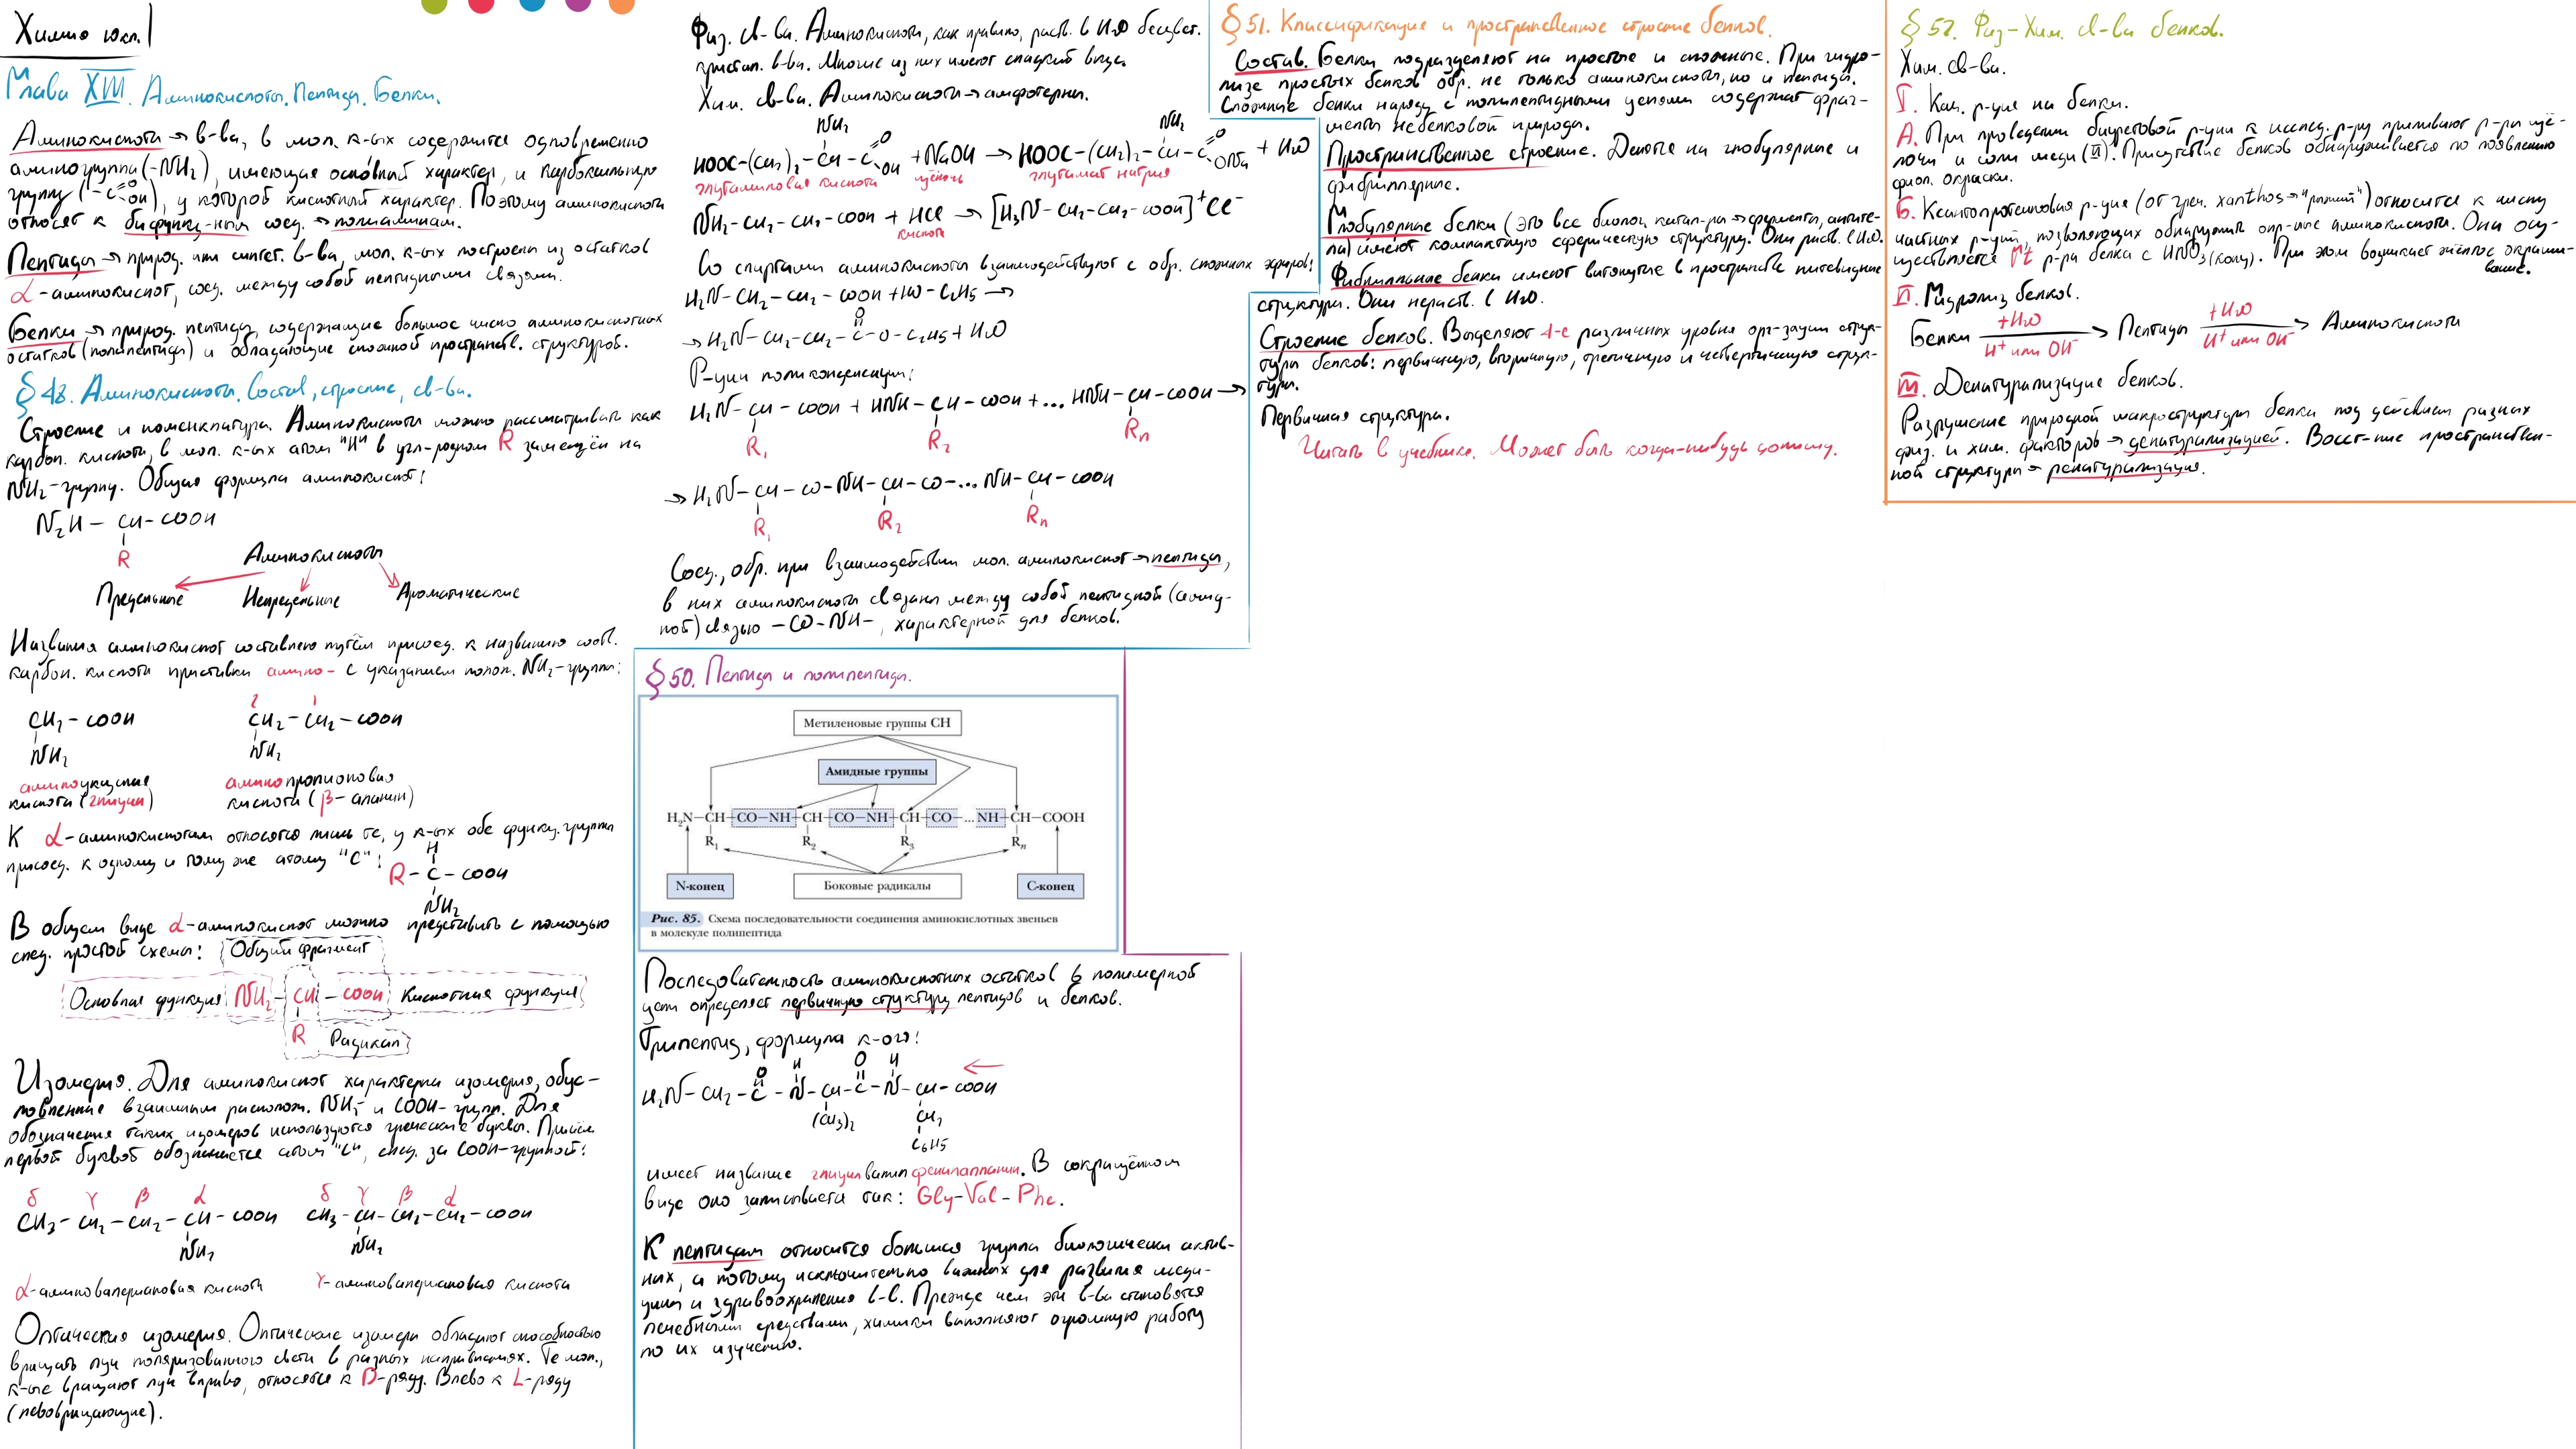 Химия 10 кл.
Глава XIII. Аминокислоты. Пептиды. Белки.
Аминокислоты → в-ва, в мол. к-ых содержится одновременно
аминогруппа (-NH₂), имеющая основный характер, и карбоксильную
группу (-C=O OH), у которой кислотный характер. Поэтому аминокислоты
относят к бифункц-ным соед. → полиаминам.
Пептиды → природ. или синтет. в-ва, мол. к-ых построены из остатков
α-аминокислот, соед. между собой пептидными связями.
Белки → природ. пептиды, содержащие большое число аминокислотных
остатков (полипептиды) и обладающие сложной пространств. структурой.
§ 48. Аминокислоты. Состав, строение, св-ва.
Строение и номенклатура. Аминокислоты можно рассматривать как
карбон. кислоты, в мол. к-ых атом "H" в угл-родном R замещён на
NH₂-группу. Общая формула аминокислот:
N₂H – CH – COOH
R
Аминокислоты
Предельные Непредельные Ароматические
Названия аминокислот составлено путём присоед. к названию соотв.
карбон. кислоты приставки амино- с указанием полож. NH₂-группы:
CH₂ – COOH
NH₂
2 1
CH₂ – CH₂ – COOH
NH₂
аминоуксусная
кислота (глицин)
аминопропионовая
кислота (β-аланин)
К α-аминокислотам относятся лишь те, у к-ых обе функц. группы
присоед. к одному и тому же атому "C":
H
R – C – COOH
NH₂
В общем виде α-аминокислот можно представить с помощью
след. простой схемы: Общий фрагмент
Основная функция NH₂ – CH – COOH Кислотная функция
R Радикал
Изомерия. Для аминокислот характерна изомерия, обус-
ловленная взаимным располож. NH₂- и COOH-групп. Для
обозначения таких изомеров используются греческие буквы. Причём
первой буквой обозначается атом "C", след. за COOH-группой:
δ γ β α
CH₃ – CH₂ – CH₂ – CH – COOH
NH₂
δ γ β α
CH₃ – CH – CH₂ – CH₂ – COOH
NH₂
α-аминовалериановая кислота
γ-аминовалериановая кислота
Оптическая изомерия. Оптические изомеры обладают способностью
вращать луч поляризованного света в разных направлениях. Те мол.,
к-ые вращают луч вправо, относятся к D-ряду. Влево к L-ряду
(левовращающие).
Физ. св-ва. Аминокислоты, как правило, раств. в H₂O бесцвет.
кристал. в-ва. Многие из них имеют сладкий вкус.
Хим. св-ва. Аминокислоты → амфотерны.
NH₂ NH₂
HOOC–(CH₂)₂–CH–C=O OH + NaOH → HOOC–(CH₂)₂–CH–C=O ONa + H₂O
глутаминовая кислота щёлочь глутамат натрия
NH₂–CH₂–CH₂–COOH + HCl → [H₃N–CH₂–CH₂–COOH]⁺Cl⁻
кислота
Со спиртами аминокислоты взаимодействуют с обр. сложных эфиров:
H₂N–CH₂–CH₂–COOH + HO–C₂H₅ →
O
→ H₂N–CH₂–CH₂–C–O–C₂H₅ + H₂O
Р-ции поликонденсации:
H₂N–CH–COOH + HNH–CH–COOH + ... HNH–CH–COOH →
R₁ R₂ Rn
→ H₂N–CH–CO–NH–CH–CO–... NH–CH–COOH
R₁ R₂ Rn
Соед., обр. при взаимодействии мол. аминокислот → пептиды,
в них аминокислоты связаны между собой пептидной (амид-
ной) связью –CO–NH–, характерной для белков.
§ 50. Пептиды и полипептиды.
Метиленовые группы CH
Амидные группы
H₂N–CH–CO–NH–CH–CO–NH–CH–CO–...NH–CH–COOH
R₁ R₂ R₃ Rn
N-конец Боковые радикалы C-конец
Рис. 85. Схема последовательности соединения аминокислотных звеньев
в молекуле полипептида
Последовательность аминокислотных остатков в полимерной
цепи определяет первичную структуру пептидов и белков.
Трипептид, формула к-ого:
O H O H
H₂N–CH₂–C–N–CH–C–N–CH–COOH
(CH₃)₂ CH₂
C₆H₅
имеет название глицилвалилфенилаланин. В сокращённом
виде оно записывается так: Gly-Val-Phe.
К пептидам относится большая группа биологически актив-
ных, а потому исключительно важных для развития меди-
цины и здравоохранения в-в. Прежде чем эти в-ва становятся
лечебными средствами, химики выполняют огромную работу
по их изучению.
§ 51. Классификация и пространственное строение белков.
Состав. Белки подразделяют на простые и сложные. При гидро-
лизе простых белков обр. не только аминокислоты, но и пептиды.
Сложные белки наряду с полипептидными цепями содержат фраг-
менты небелковой природы.
Пространственное строение. Делят на глобулярные и
фибриллярные.
Глобулярные белки (это все биолог. катал-ры → ферменты, антите-
ла) имеют компактную сферическую структуру. Они раств. в H₂O.
Фибрилльные белки имеют вытянутые в пространстве нитевидные
структуры. Они нераств. в H₂O.
Строение белков. Выделяют 4-е различных уровня орг-зации струк-
туры белков: первичную, вторичную, третичную и четвертичную струк-
туры.
Первичная структура.
Читать в учебнике. Может быть когда-нибудь допишу.
§ 52. Физ-Хим. св-ва белков.
Хим. св-ва.
I. Кач. р-ция на белки.
А. При проведении биуретовой р-ции к исслед. р-ру приливают р-ры щё-
лочи и соли меди (II). Присутствие белков обнаруживается по появлению
фиол. окраски.
Б. Ксантопротеиновая р-ция (от греч. xanthos → "рыжий") относится к числу
частных р-ций, позволяющих обнаружить опр-ные аминокислоты. Они осу-
ществляется ↑t р-ра белка с HNO₃(конц). При этом возникает жёлтое окраши-
вание.
II. Гидролиз белков.
Белки +H₂O / H⁺ или OH⁻ → Пептиды +H₂O / H⁺ или OH⁻ → Аминокислоты
III. Денатурализация белков.
Разрушение природной макроструктуры белки под действием разных
физ. и хим. факторов → денатурализацией. Восст-ние пространствен-
ной структуры → ренатурализация.